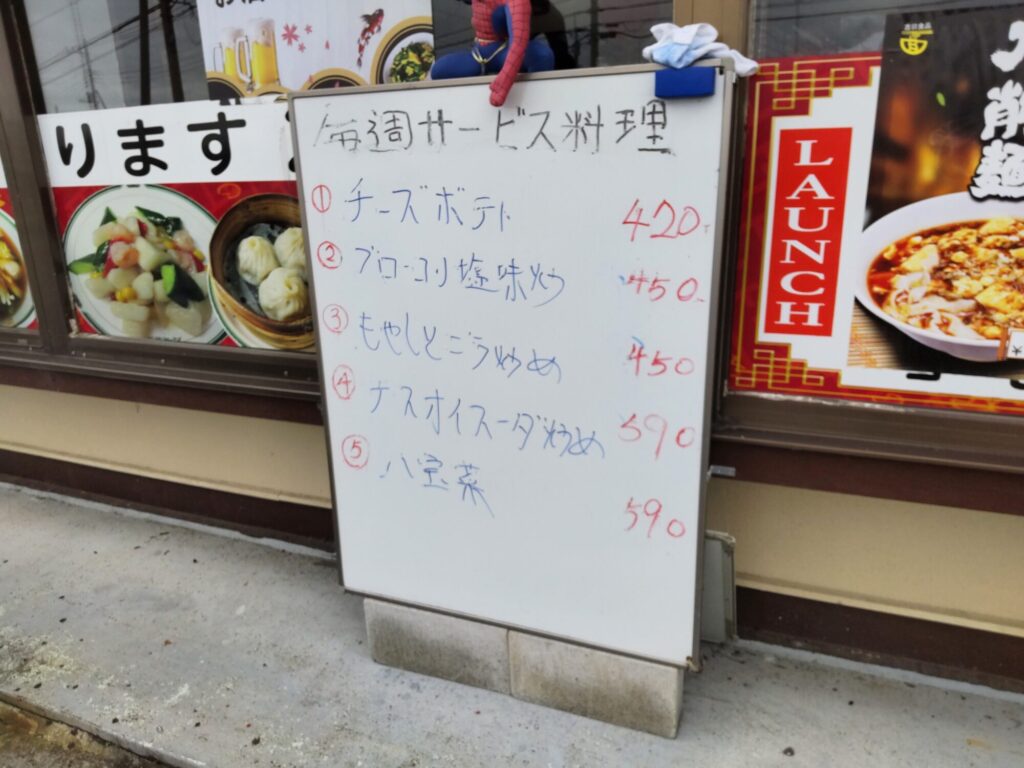 ります
毎週サービス料理
① チーズポテト 420
② ブロコリ塩味炒 450
③ もやしとニラ炒め 450
④ ナスオイスーダ炒め 590
⑤ 八宝菜 590
LAUNCH
刀削麺